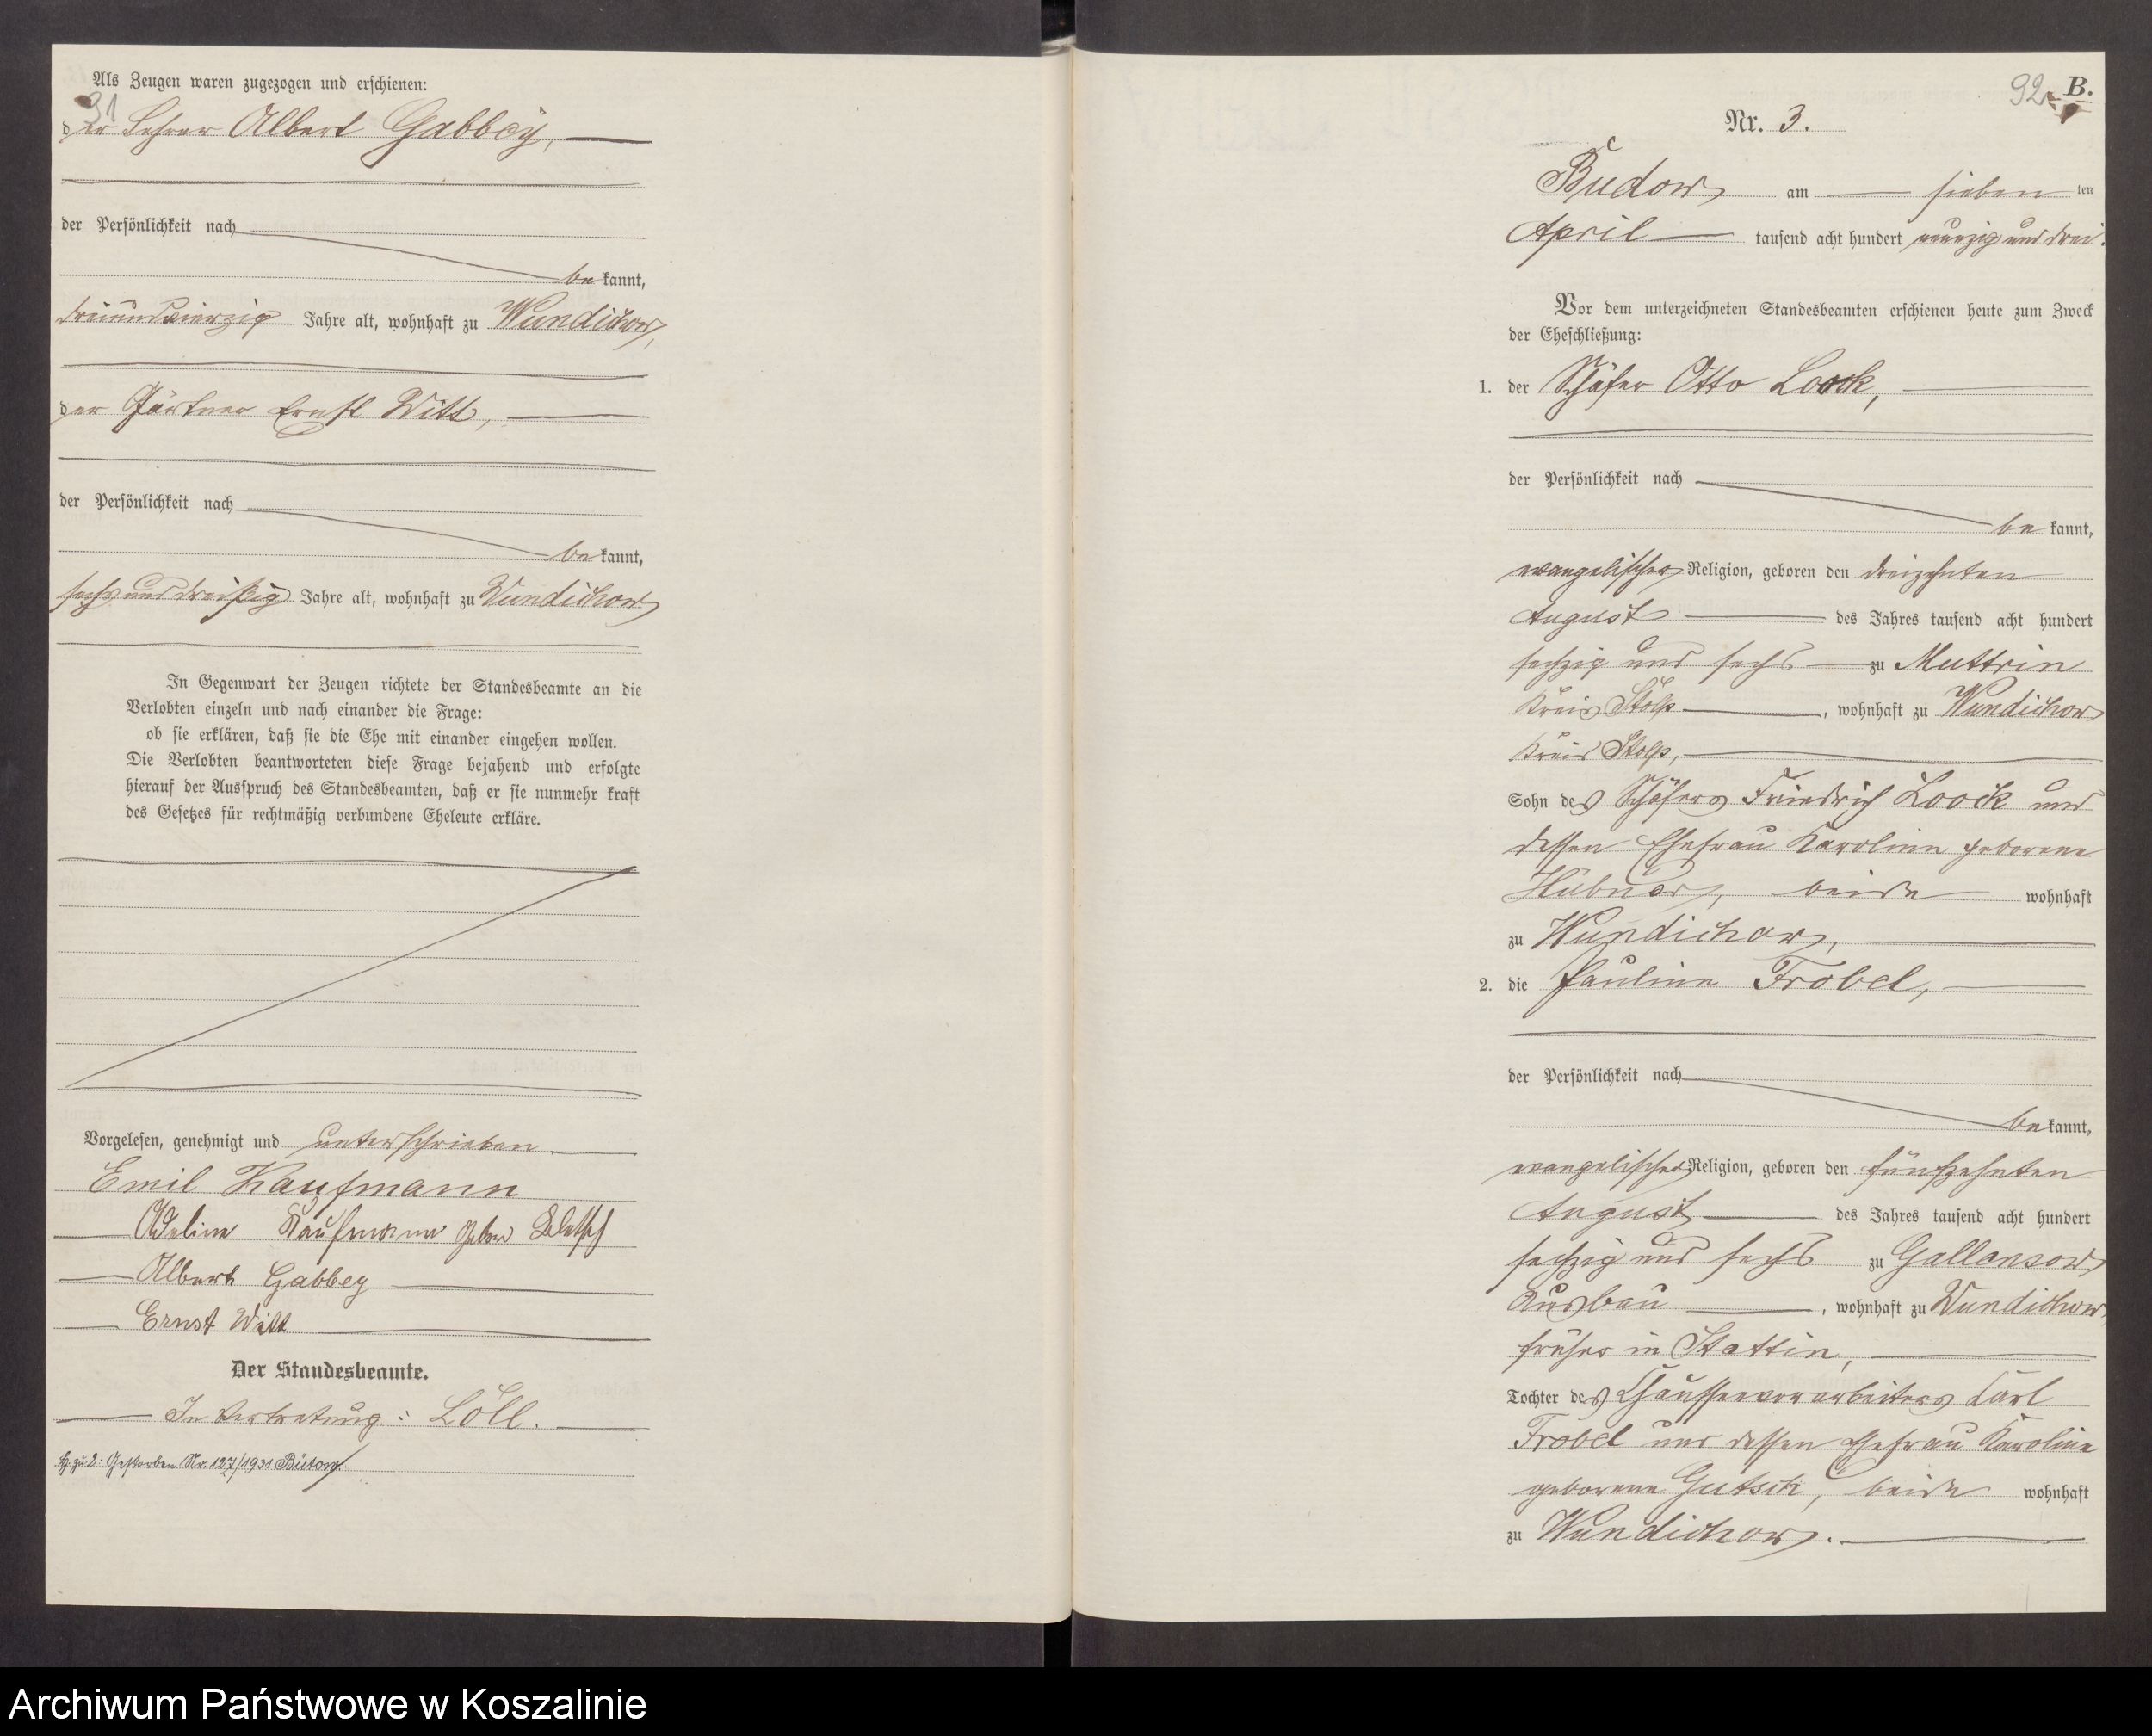 Als Zeugen waren zugezogen und erschienen:
91
der Lehrer Albert Gabbey,
der Persönlichkeit nach
be kannt,
dreiundvierzig Jahre alt, wohnhaft zu Wundichow,
der Gärtner Ernst Witt,
der Persönlichkeit nach
be kannt,
sechsunddreißig Jahre alt, wohnhaft zu Wundichow
In Gegenwart der Zeugen richtete der Standesbeamte an die
Verlobten einzeln und nach einander die Frage:
ob sie erklären, daß sie die Ehe mit einander eingehen wollen.
Die Verlobten beantworteten diese Frage bejahend und erfolgte
hierauf der Ausspruch des Standesbeamten, daß er sie nunmehr kraft
des Gesetzes für rechtmäßig verbundene Eheleute erkläre.
Vorgelesen, genehmigt und unterschrieben
Emil Kaufmann
Adeline Kaufmann
Albert Gabbey
Ernst Witt
Der Standesbeamte.
In Vertretung: Löll.
zu 2: Gestorben Nr. 127/1931 Bütow
92 B.
Nr. 3.
Budow am sieben ten
April tausend acht hundert neunzig und drei.
Vor dem unterzeichneten Standesbeamten erschienen heute zum Zweck
der Eheschließung:
1. der Schäfer Otto Loock,
der Persönlichkeit nach
be kannt,
evangelischer Religion, geboren den dreizehnten
August des Jahres tausend acht hundert
sechzig und sechs zu Muttrin
Kreis Stolp, wohnhaft zu Wundichow
Kreis Stolp,
Sohn des Schäfers Friedrich Loock und
dessen Ehefrau Karoline geborene
Hübner, beide wohnhaft
zu Wundichow,
2. die Pauline Frobel,
der Persönlichkeit nach
be kannt,
evangelischer Religion, geboren den fünfzehnten
August des Jahres tausend acht hundert
sechzig und sechs zu Gallensow
Ausbau, wohnhaft zu Wundichow,
früher in Stettin,
Tochter des Chausseevorarbeiters Carl
Frobel und dessen Ehefrau Karoline
geborene Gutsch, beide wohnhaft
zu Wundichow.
Archiwum Państwowe w Koszalinie